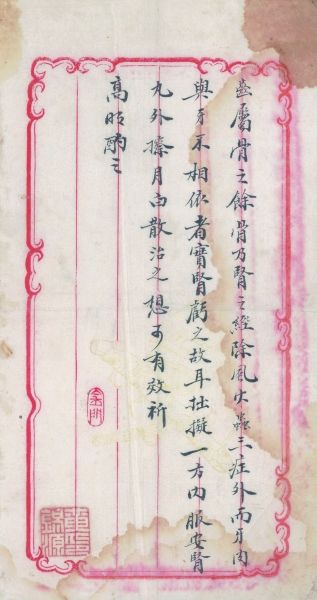 齒屬骨之餘骨乃腎之經除風火蟲三症外而牙肉
與牙不相依者實腎虧之故耳拙擬一方內服安腎
丸外擦月白散治之想可有效祈
高明酌之